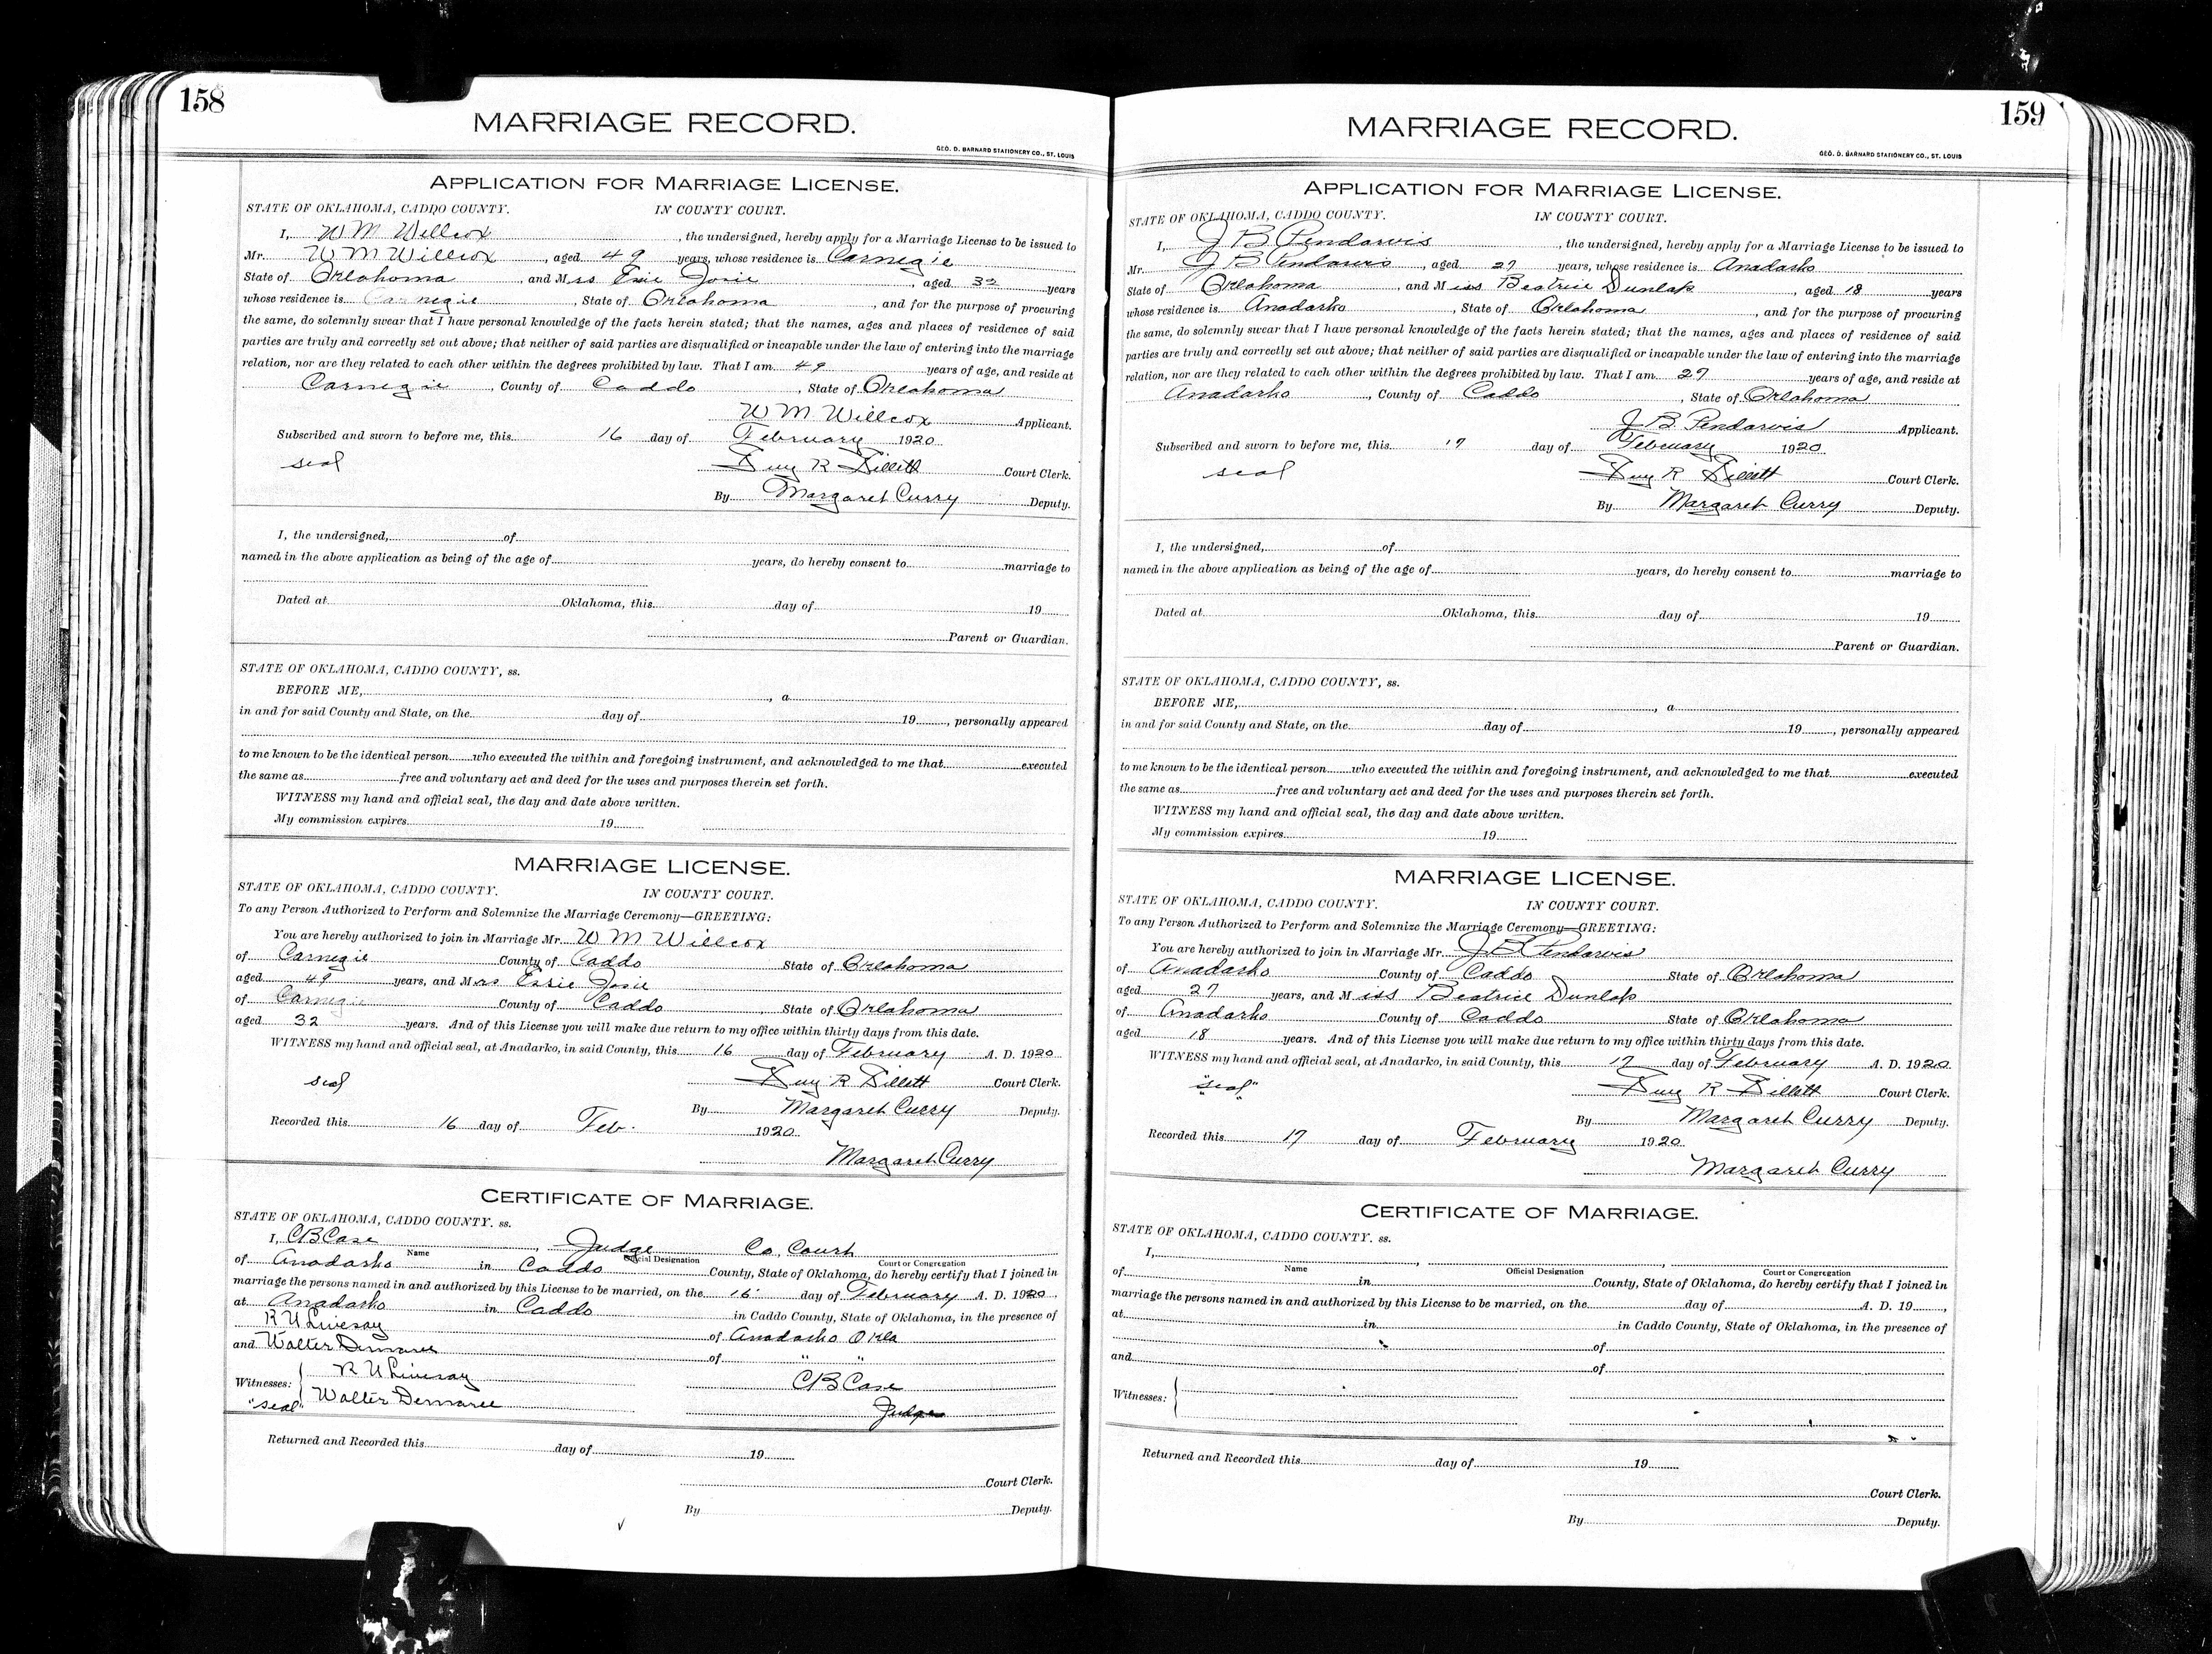 158
MARRIAGE RECORD.
GEO. D. BARNARD STATIONERY CO., ST. LOUIS
APPLICATION FOR MARRIAGE LICENSE.
STATE OF OKLAHOMA, CADDO COUNTY. IN COUNTY COURT.
I, W M Willcox, the undersigned, hereby apply for a Marriage License to be issued to
Mr. W M Willcox, aged 49 years, whose residence is Carnegie
State of Oklahoma, and Mrs Essie Josie, aged 32 years
whose residence is Carnegie, State of Oklahoma, and for the purpose of procuring
the same, do solemnly swear that I have personal knowledge of the facts herein stated; that the names, ages and places of residence of said
parties are truly and correctly set out above; that neither of said parties are disqualified or incapable under the law of entering into the marriage
relation, nor are they related to each other within the degrees prohibited by law. That I am 49 years of age, and reside at
Carnegie, County of Caddo, State of Oklahoma
W M Willcox Applicant.
Subscribed and sworn to before me, this 16 day of February 1920
seal Guy R Gillett Court Clerk.
By Margaret Curry Deputy.
I, the undersigned, of
named in the above application as being of the age of years, do hereby consent to marriage to
Dated at Oklahoma, this day of 19
Parent or Guardian.
STATE OF OKLAHOMA, CADDO COUNTY, ss.
BEFORE ME, , a
in and for said County and State, on the day of 19 , personally appeared
to me known to be the identical person who executed the within and foregoing instrument, and acknowledged to me that executed
the same as free and voluntary act and deed for the uses and purposes therein set forth.
WITNESS my hand and official seal, the day and date above written.
My commission expires 19
MARRIAGE LICENSE.
STATE OF OKLAHOMA, CADDO COUNTY. IN COUNTY COURT.
To any Person Authorized to Perform and Solemnize the Marriage Ceremony—GREETING:
You are hereby authorized to join in Marriage Mr. W M Willcox
of Carnegie County of Caddo State of Oklahoma
aged 49 years, and Mrs Essie Josie
of Carnegie County of Caddo, State of Oklahoma
aged 32 years. And of this License you will make due return to my office within thirty days from this date.
WITNESS my hand and official seal, at Anadarko, in said County, this 16 day of February A. D. 1920
seal Guy R Gillett Court Clerk.
By Margaret Curry Deputy.
Recorded this 16 day of Feb. 1920
Margaret Curry
CERTIFICATE OF MARRIAGE.
STATE OF OKLAHOMA, CADDO COUNTY. ss.
I, C B Case, Judge Co. Court
Name Official Designation Court or Congregation
of Anadarko in Caddo County, State of Oklahoma, do hereby certify that I joined in
marriage the persons named in and authorized by this License to be married, on the 16 day of February A. D. 1920,
at Anadarko in Caddo in Caddo County, State of Oklahoma, in the presence of
R U Livesay of Anadarko Okla
and Walter Demaree of " "
Witnesses: R U Livesay C B Case
"seal" Walter Demaree Judge
Returned and Recorded this day of 19
Court Clerk.
By Deputy.
159
MARRIAGE RECORD.
GEO. D. BARNARD STATIONERY CO., ST. LOUIS
APPLICATION FOR MARRIAGE LICENSE.
STATE OF OKLAHOMA, CADDO COUNTY. IN COUNTY COURT.
I, J B Pendarvis, the undersigned, hereby apply for a Marriage License to be issued to
Mr. J B Pendarvis, aged 27 years, whose residence is Anadarko
State of Oklahoma, and Miss Beatrice Dunlap, aged 18 years
whose residence is Anadarko, State of Oklahoma, and for the purpose of procuring
the same, do solemnly swear that I have personal knowledge of the facts herein stated; that the names, ages and places of residence of said
parties are truly and correctly set out above; that neither of said parties are disqualified or incapable under the law of entering into the marriage
relation, nor are they related to each other within the degrees prohibited by law. That I am 27 years of age, and reside at
Anadarko, County of Caddo, State of Oklahoma
J B Pendarvis Applicant.
Subscribed and sworn to before me, this 17 day of February 1920
seal Guy R Gillett Court Clerk.
By Margaret Curry Deputy.
I, the undersigned, of
named in the above application as being of the age of years, do hereby consent to marriage to
Dated at Oklahoma, this day of 19
Parent or Guardian.
STATE OF OKLAHOMA, CADDO COUNTY, ss.
BEFORE ME, , a
in and for said County and State, on the day of 19 , personally appeared
to me known to be the identical person who executed the within and foregoing instrument, and acknowledged to me that executed
the same as free and voluntary act and deed for the uses and purposes therein set forth.
WITNESS my hand and official seal, the day and date above written.
My commission expires 19
MARRIAGE LICENSE.
STATE OF OKLAHOMA, CADDO COUNTY. IN COUNTY COURT.
To any Person Authorized to Perform and Solemnize the Marriage Ceremony—GREETING:
You are hereby authorized to join in Marriage Mr. J B Pendarvis
of Anadarko County of Caddo State of Oklahoma
aged 27 years, and Miss Beatrice Dunlap
of Anadarko County of Caddo State of Oklahoma
aged 18 years. And of this License you will make due return to my office within thirty days from this date.
WITNESS my hand and official seal, at Anadarko, in said County, this 17 day of February A. D. 1920
"seal" Guy R Gillett Court Clerk.
By Margaret Curry Deputy.
Recorded this 17 day of February 1920
Margaret Curry
CERTIFICATE OF MARRIAGE.
STATE OF OKLAHOMA, CADDO COUNTY. ss.
I, , ,
Name Official Designation Court or Congregation
of in County, State of Oklahoma, do hereby certify that I joined in
marriage the persons named in and authorized by this License to be married, on the day of A. D. 19 ,
at in in Caddo County, State of Oklahoma, in the presence of
of
and of
Witnesses:
Returned and Recorded this day of 19
Court Clerk.
By Deputy.